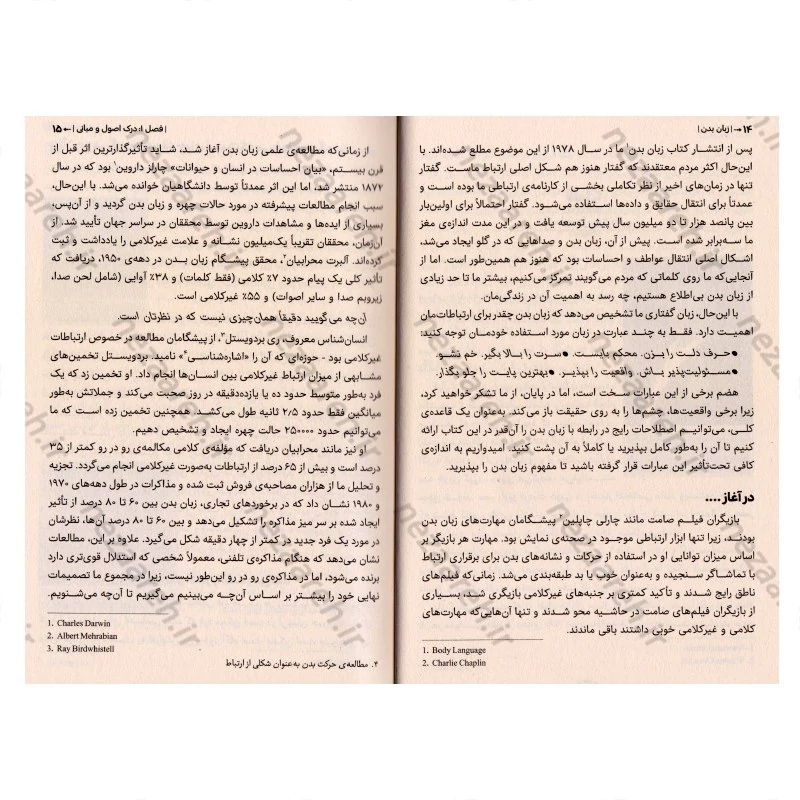 ۱۴ → | زبان بدن |
پس از انتشار کتاب زبان بدن¹ ما در سال ۱۹۷۸ از این موضوع مطلع شده‌اند. با
این‌حال اکثر مردم معتقدند که گفتار هنوز هم شکل اصلی ارتباط ماست. گفتار
تنها در زمان‌های اخیر از نظر تکاملی بخشی از کارنامه‌ی ارتباطی ما بوده است و
عمدتاً برای انتقال حقایق و داده‌ها استفاده می‌شود. گفتار احتمالاً برای اولین‌بار
بین پانصد هزار تا دو میلیون سال پیش توسعه یافت و در این مدت اندازه‌ی مغز
ما سه‌برابر شده است. پیش از آن، زبان بدن و صداهایی که در گلو ایجاد می‌شد،
اشکال اصلی انتقال عواطف و احساسات بود که هنوز هم همین‌طور است. اما از
آنجایی‌که ما روی کلماتی که مردم می‌گویند تمرکز می‌کنیم، بیشتر ما تا حد زیادی
از زبان بدن بی‌اطلاع هستیم، چه رسد به اهمیت آن در زندگی‌مان.
با این‌حال، زبان گفتاری ما تشخیص می‌دهد که زبان بدن چقدر برای ارتباطات‌مان
اهمیت دارد. فقط به چند عبارت در زبان مورد استفاده خودمان توجه کنید:
●حرف دلت را بزن. محکم بایست. ●سرت را بالا بگیر. خم نشو.
●مسئولیت‌پذیر باش. واقعیت را بپذیر. ●بهترین پایت را جلو بگذار.
هضم برخی از این عبارات سخت است، اما در پایان، از ما تشکر خواهید کرد،
زیرا برخی واقعیت‌ها، چشم‌ها را به روی حقیقت باز می‌کند. به‌عنوان یک قاعده‌ی
کلی، می‌توانیم اصطلاحات رایج در رابطه با زبان بدن را آن‌قدر در این کتاب ارائه
کنیم تا آن را به‌طور کامل بپذیرید یا کاملاً به آن پشت کنید. امیدواریم به اندازه‌ی
کافی تحت‌تأثیر این عبارات قرار گرفته باشید تا مفهوم زبان بدن را بپذیرید.
در آغاز ....
بازیگران فیلم صامت مانند چارلی چاپلین² پیشگامان مهارت‌های زبان بدن
بودند، زیرا تنها ابزار ارتباطی موجود در صحنه‌ی نمایش بود. مهارت هر بازیگر بر
اساس میزان توانایی او در استفاده از حرکات و نشانه‌های بدن برای برقراری ارتباط
با تماشاگر سنجیده و به‌عنوان خوب یا بد طبقه‌بندی می‌شد. زمانی‌که فیلم‌های
ناطق رایج شدند و تأکید کمتری بر جنبه‌های غیرکلامی بازیگری شد، بسیاری
از بازیگران فیلم‌های صامت در حاشیه محو شدند و تنها آن‌هایی‌که مهارت‌های
کلامی و غیرکلامی خوبی داشتند باقی ماندند.
1. Body Language
2. Charlie Chaplin
| فصل ۱: درک اصول و مبانی | ← ۱۵
از زمانی‌که مطالعه‌ی علمی زبان بدن آغاز شد، شاید تأثیرگذارترین اثر قبل از
قرن بیستم، «بیان احساسات در انسان و حیوانات» چارلز داروین¹ بود که در سال
۱۸۷۲ منتشر شد، اما این اثر عمدتاً توسط دانشگاهیان خوانده می‌شد. با این‌حال،
سبب انجام مطالعات پیشرفته در مورد حالات چهره و زبان بدن گردید و از آن‌پس،
بسیاری از ایده‌ها و مشاهدات داروین توسط محققان در سراسر جهان تأیید شد. از
آن‌زمان، محققان تقریباً یک‌میلیون نشانه و علامت غیرکلامی را یادداشت و ثبت
کرده‌اند. آلبرت محرابیان²، محقق پیشگام زبان بدن در دهه‌ی ۱۹۵۰، دریافت که
تأثیر کلی یک پیام حدود ۷٪ کلامی (فقط کلمات) و ۳۸٪ آوایی (شامل لحن صدا،
زیروبم صدا و سایر اصوات) و ۵۵٪ غیرکلامی است.
آن‌چه می‌گویید دقیقاً همان‌چیزی نیست که در نظرتان است.
انسان‌شناس معروف، ری بردویستل³، از پیشگامان مطالعه در خصوص ارتباطات
غیرکلامی بود - حوزه‌ای که آن را «اشاره‌شناسی⁴» نامید. بردویستل تخمین‌های
مشابهی از میزان ارتباط غیرکلامی بین انسان‌ها انجام داد. او تخمین زد که یک
فرد به‌طور متوسط حدود ده یا یازده‌دقیقه در روز صحبت می‌کند و جملاتش به‌طور
میانگین فقط حدود ۲/۵ ثانیه طول می‌کشد. همچنین تخمین زده است که ما
می‌توانیم حدود ۲۵۰۰۰۰ حالت چهره ایجاد و تشخیص دهیم.
او نیز مانند محرابیان دریافت که مؤلفه‌ی کلامی مکالمه‌ی رو در رو کمتر از ۳۵
درصد است و بیش از ۶۵ درصد از ارتباطات به‌صورت غیرکلامی انجام می‌گردد. تجزیه
و تحلیل ما از هزاران مصاحبه‌ی فروش ثبت شده و مذاکرات در طول دهه‌های ۱۹۷۰
و ۱۹۸۰ نشان داد که در برخوردهای تجاری، زبان بدن بین ۶۰ تا ۸۰ درصد از تأثیر
ایجاد شده بر سر میز مذاکره را تشکیل می‌دهد و بین ۶۰ تا ۸۰ درصد آن‌ها، نظرشان
در مورد یک فرد جدید در کمتر از چهار دقیقه شکل می‌گیرد. علاوه بر این، مطالعات
نشان می‌دهد که هنگام مذاکره‌ی تلفنی، معمولاً شخصی که استدلال قوی‌تری دارد
برنده می‌شود، اما در مذاکره‌ی رو در رو این‌طور نیست، زیرا در مجموع ما تصمیمات
نهایی خود را بیشتر بر اساس آن‌چه می‌بینیم می‌گیریم تا آن‌چه می‌شنویم.
1. Charles Darwin
2. Albert Mehrabian
3. Ray Birdwhistell
۴. مطالعه‌ی حرکت بدن به‌عنوان شکلی از ارتباط